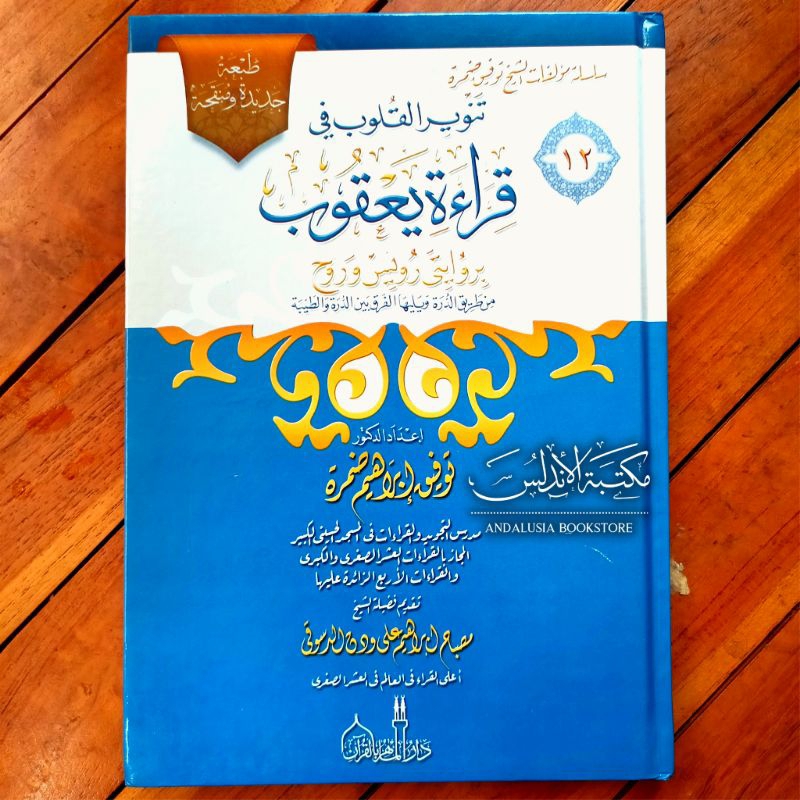 سلسلة مؤلفات الشيخ توفيق ضمرة
طبعة
جديدة ومنقحة
١٢
تنوير القلوب في
قراءة يعقوب
بروايتي رويس وروح
من طريق الدرة ويليها الفرق بين الدرة والطيبة
إعداد الدكتور
توفيق إبراهيم ضمرة
مدرس التجويد والقراءات في المسجد الحسيني الكبير
المجاز بالقراءات العشر الصغرى والكبرى
والقراءات الأربع الزائدة عليها
تقديم فضيلة الشيخ
مصباح إبراهيم علي ودن الدسوقي
أعلى القراء في العالم في العشر الصغرى
دار الماهر بالقرآن
مكتبة الأندلس
ANDALUSIA BOOKSTORE